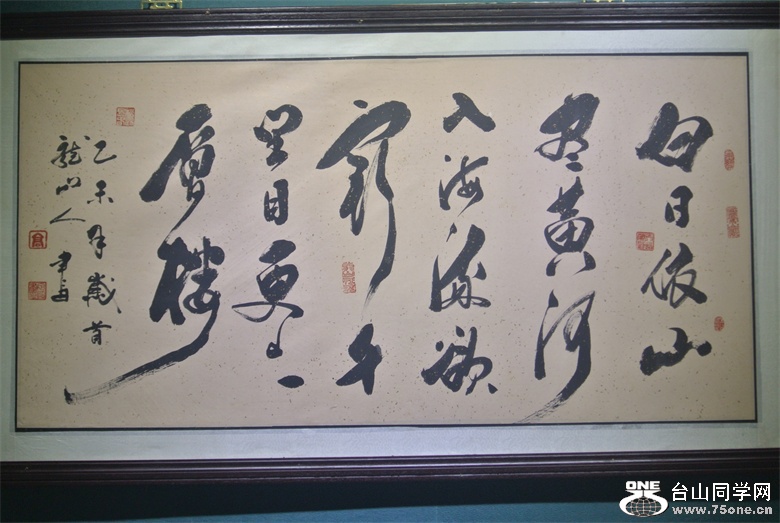 白日依山
盡黄河
入海流欲
窮千
里目更上一
層樓
乙未年歲首
龍山人
ONE
台山同学网
www.75one.cn